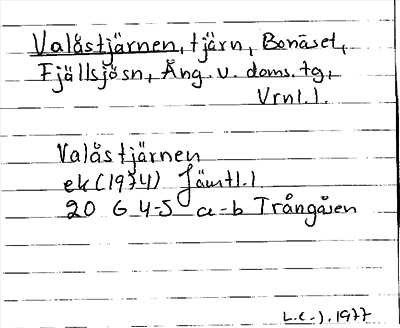 Valåstjärnen, tjärn, Bonäset,
Fjällsjösn, Ång. v. doms. tg,
Vrnl.l.
Valåstjärnen
ek (1974) Jämtl.l
20 G 4-5 a-b Trångåsen
1977